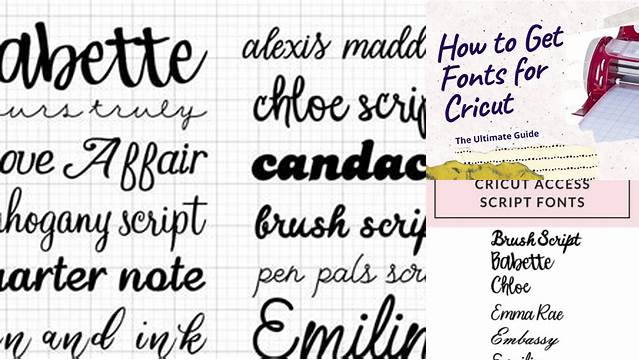 abette
urs truly
ove Affair
ahogany script
uarter note
n and ink
alexis madd
chloe scrip
candac
brush scrip
pen pals scr
Emilin
How to Get
Fonts for
Cricut
The Ultimate Guide
CRICUT ACCESS
SCRIPT FONTS
Brush Script
Babette
Chloe
Emma Rae
Embassy